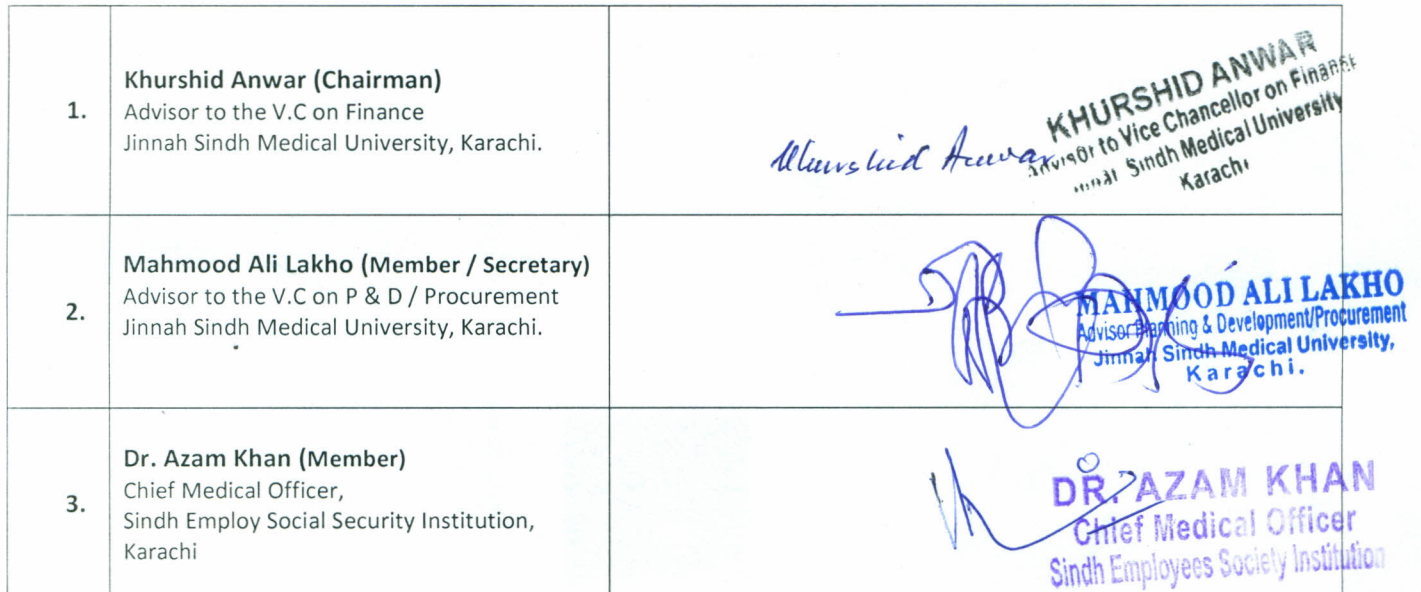 1.
Khurshid Anwar (Chairman)
Advisor to the V.C on Finance
Jinnah Sindh Medical University, Karachi.
Khurshid Anwar
KHURSHID ANWAR
Advisor to Vice Chancellor on Finance
Sindh Medical University
Karachi
2.
Mahmood Ali Lakho (Member / Secretary)
Advisor to the V.C on P & D / Procurement
Jinnah Sindh Medical University, Karachi.
MAHMOOD ALI LAKHO
Advisor Planning & Development/Procurement
Jinnah Sindh Medical University,
Karachi.
3.
Dr. Azam Khan (Member)
Chief Medical Officer,
Sindh Employ Social Security Institution,
Karachi
DR. AZAM KHAN
Chief Medical Officer
Sindh Employees Society Institution